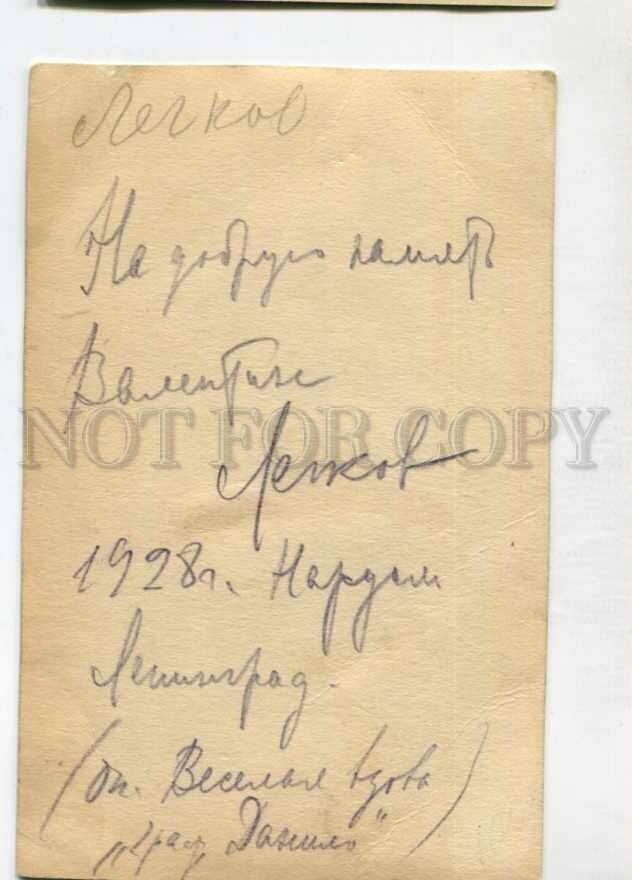 Легков
На добрую память
Валентине
NOT FOR COPY
Легков
1928г. Нардом
Ленинград.
(оп. Веселая вдова
"Граф Данило")